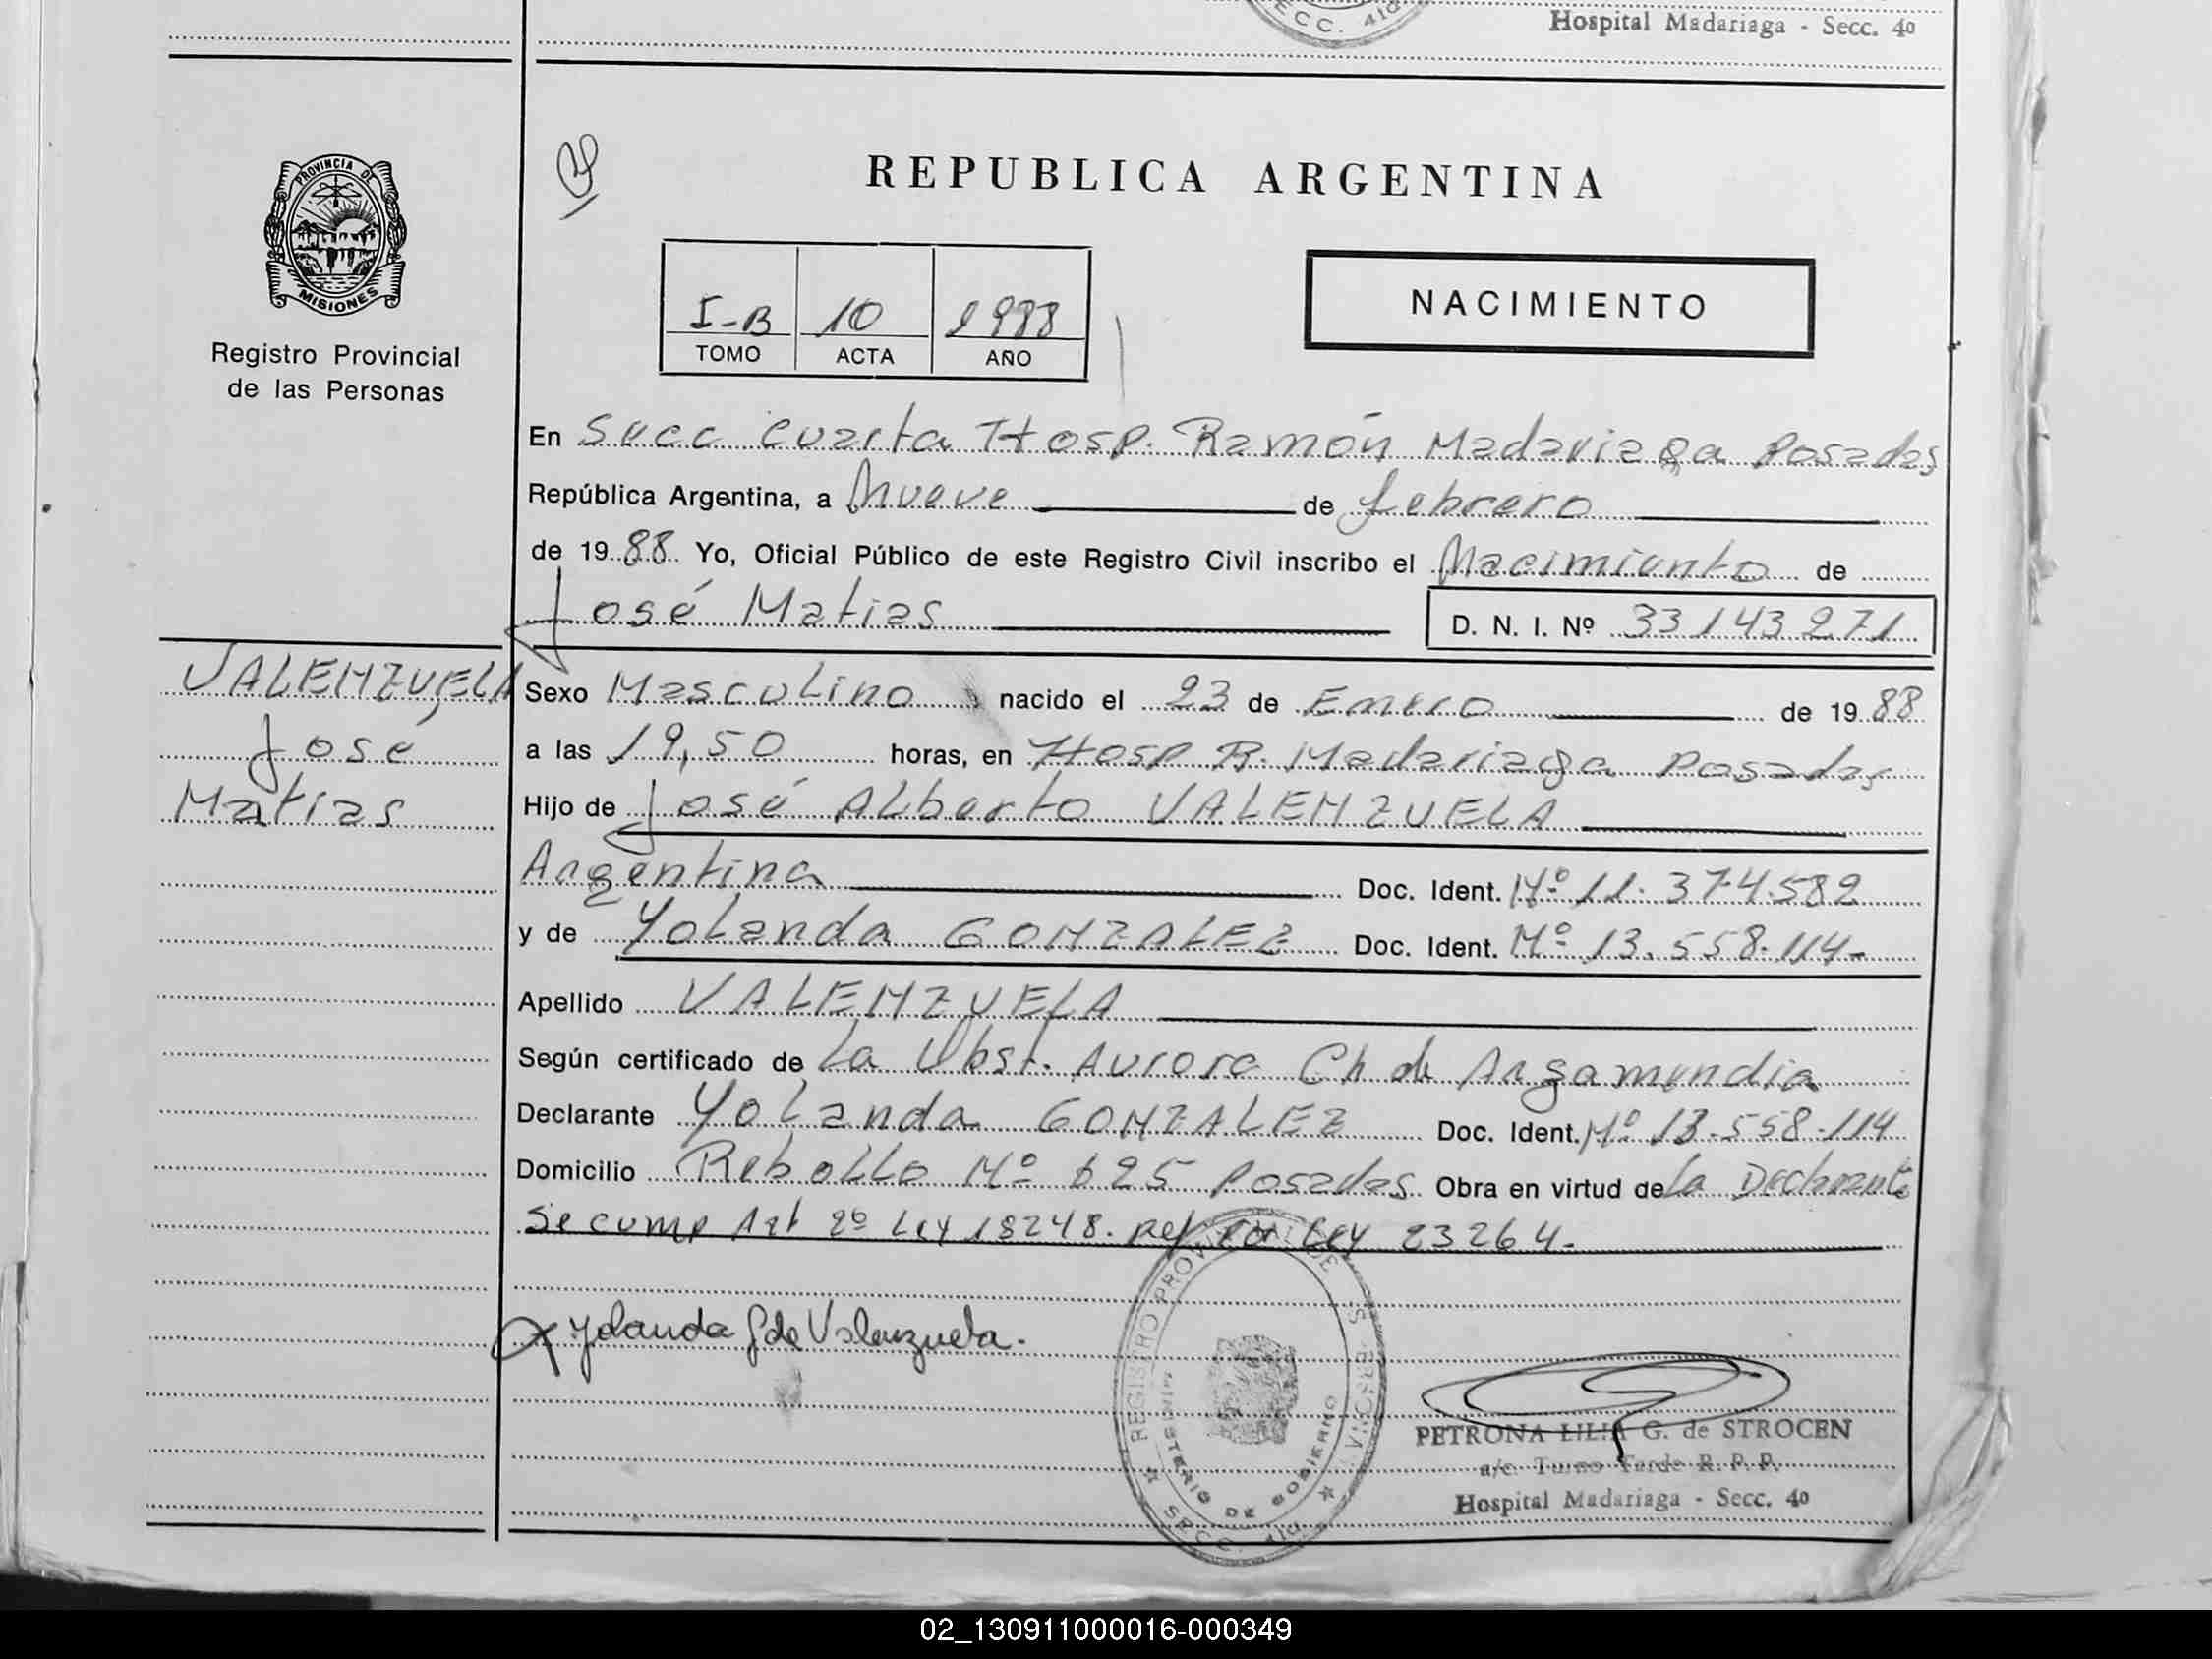 SECC. 4ta
Hospital Madariaga - Secc. 4º
PROVINCIA DE
MISIONES
Registro Provincial
de las Personas
REPUBLICA ARGENTINA
I-B 10 1988
TOMO ACTA AÑO
NACIMIENTO
En Secc cuarta Hosp. Ramón Madariaga Posadas
República Argentina, a Nueve de febrero
de 1988 Yo, Oficial Público de este Registro Civil inscribo el Nacimiento de
José Matias D. N. I. Nº 33143271
VALENZUELA
José
Matias
Sexo Masculino nacido el 23 de Enero de 1988
a las 19,50 horas, en Hosp R. Madariaga Posadas
Hijo de José Alberto VALENZUELA
Argentina Doc. Ident. Nº 11.374.582
y de Yolanda GONZALEZ Doc. Ident. Nº 13.558.114-
Apellido VALENZUELA
Según certificado de La Obst. Aurora Ch de Argamundia
Declarante Yolanda GONZALEZ Doc. Ident. Nº 13.558.114
Domicilio Rebollo Nº 625 Posadas Obra en virtud de La Declarante
Se cump Art 2º Ley 18248. Ref por Ley 23264.
Yolanda G de Valenzuela.
REGISTRO PROVINCIAL DE
MINISTERIO DE GOBIERNO
SECC. 4ta
PETRONA LILIA G. de STROCEN
a/c. Turno Tarde R. P. P.
Hospital Madariaga - Secc. 4º
02_130911000016-000349